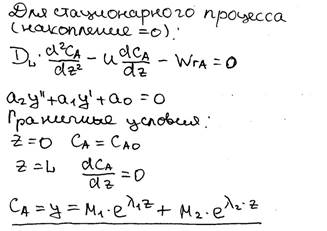 Для стационарного процесса
(накопление =0):
D_L · d²C_A/dz² - u dC_A/dz - W_rA = 0
a₂y"+a₁y'+a₀ = 0
Граничные условия:
z=0 C_A = C_A0
z=L dC_A/dz = 0
C_A = y = M₁·e^λ₁z + M₂·e^λ₂·z